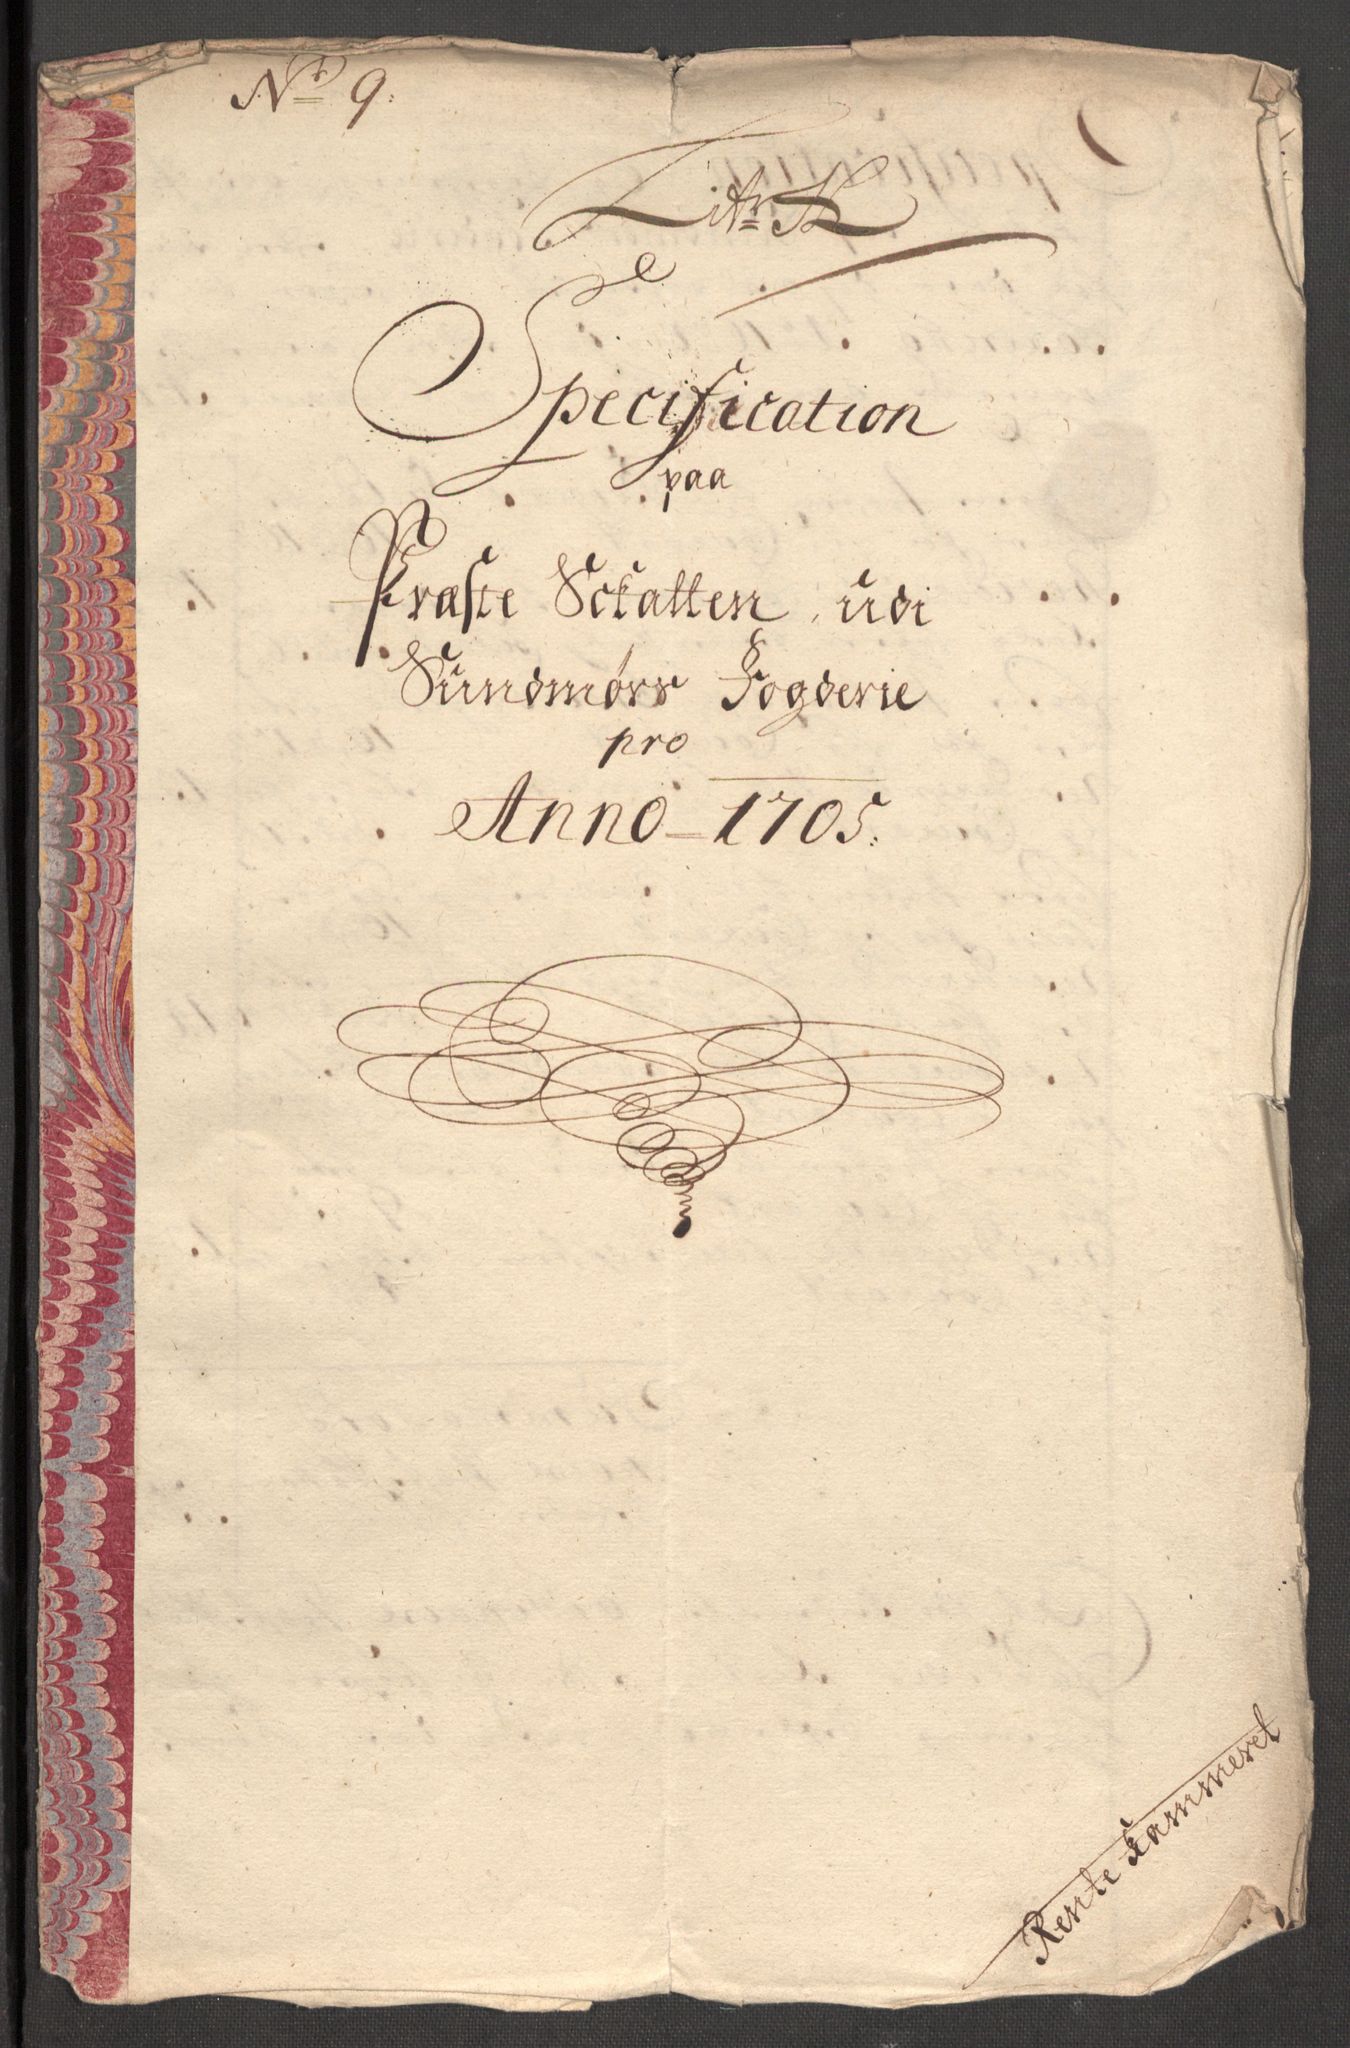 No 9.
Litr K
Specification
paa
Præste Sckatten, udi
Sundmørs Fogderie
pro
Anno 1705.
Rente Kammeret